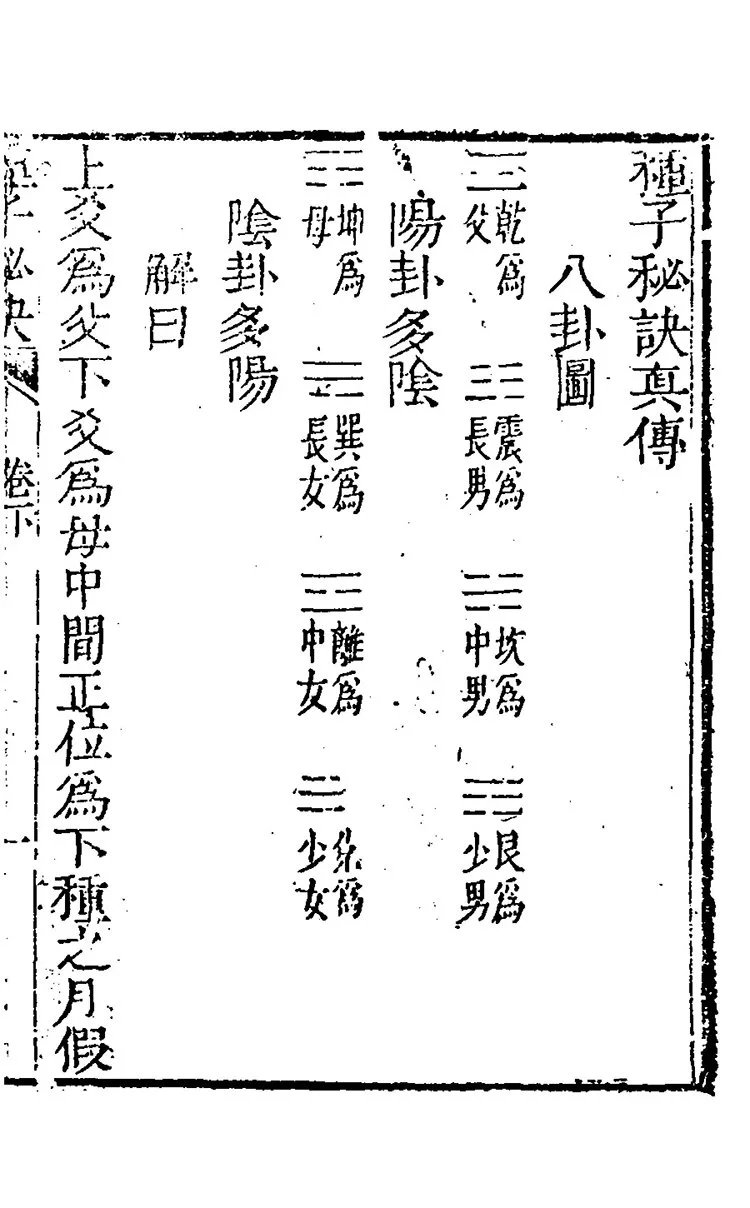 種子秘訣真傳
八卦圖
☰乾為父 ☳震為長男 ☵坎為中男 ☶艮為少男
陽卦多陰
☷坤為母 ☴巽為長女 ☲離為中女 ☱兌為少女
陰卦多陽
解曰
上爻為父下爻為母中間正位為下種之月假
種子秘訣 卷下 一